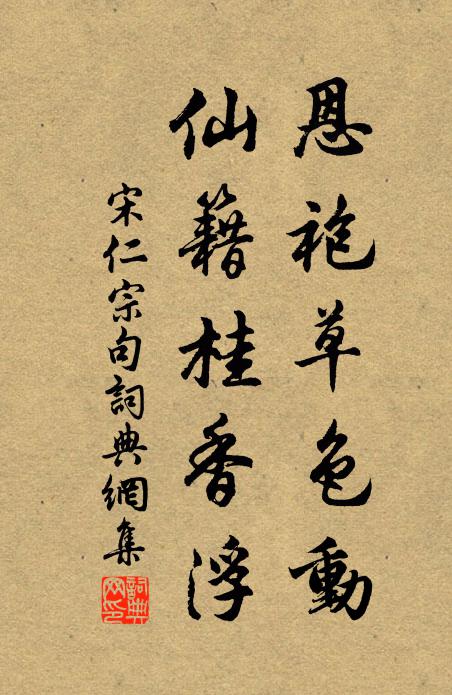 恩袍草色動
仙籍桂香浮
宋仁宗句詞典網集
詞典
网印